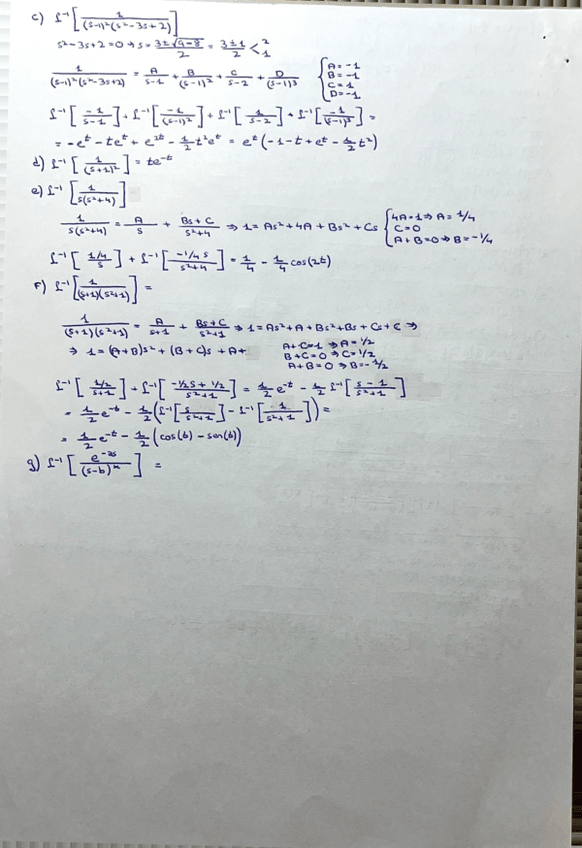 c) L⁻¹[1/((s-1)²(s²-3s+2))]
s²-3s+2=0 → s = (3±√(9-8))/2 = (3±1)/2 < 2 1
1/((s-1)²(s²-3s+2)) = A/(s-1) + B/(s-1)² + C/(s-2) + D/(s-1)³ { A=-1 B=-1 C=1 D=-1
L⁻¹[-1/(s-1)] + L⁻¹[-1/(s-1)²] + L⁻¹[1/(s-2)] + L⁻¹[-1/(s-1)³] =
= -eᵗ - teᵗ + e²ᵗ - 1/2 t²eᵗ = eᵗ(-1-t+eᵗ-1/2 t²)
d) L⁻¹[1/(s+1)²] = te⁻ᵗ
e) L⁻¹[1/(s(s²+4))]
1/(s(s²+4)) = A/s + (Bs+C)/(s²+4) ⇒ 1=As²+4A+Bs²+Cs { 4A=1 ⇒ A=1/4 C=0 A+B=0 ⇒ B=-1/4
L⁻¹[(1/4)/s] + L⁻¹[(-1/4 s)/(s²+4)] = 1/4 - 1/4 cos(2t)
f) L⁻¹[1/((s+1)(s²+1))] =
1/((s+1)(s²+1)) = A/(s+1) + (Bs+C)/(s²+1) ⇒ 1=As²+A+Bs²+Bs+Cs+C ⇒
⇒ 1=(A+B)s²+(B+C)s+A+ A+C=1 ⇒ A=1/2 B+C=0 ⇒ C=1/2 A+B=0 ⇒ B=-1/2
L⁻¹[(1/2)/(s+1)] + L⁻¹[(-1/2 s+1/2)/(s²+1)] = 1/2 e⁻ᵗ - 1/2 L⁻¹[(s-1)/(s²+1)]
= 1/2 e⁻ᵗ - 1/2 (L⁻¹[s/(s²+1)] - L⁻¹[1/(s²+1)]) =
= 1/2 e⁻ᵗ - 1/2 (cos(t) - sen(t))
g) L⁻¹[/(s-b)] =